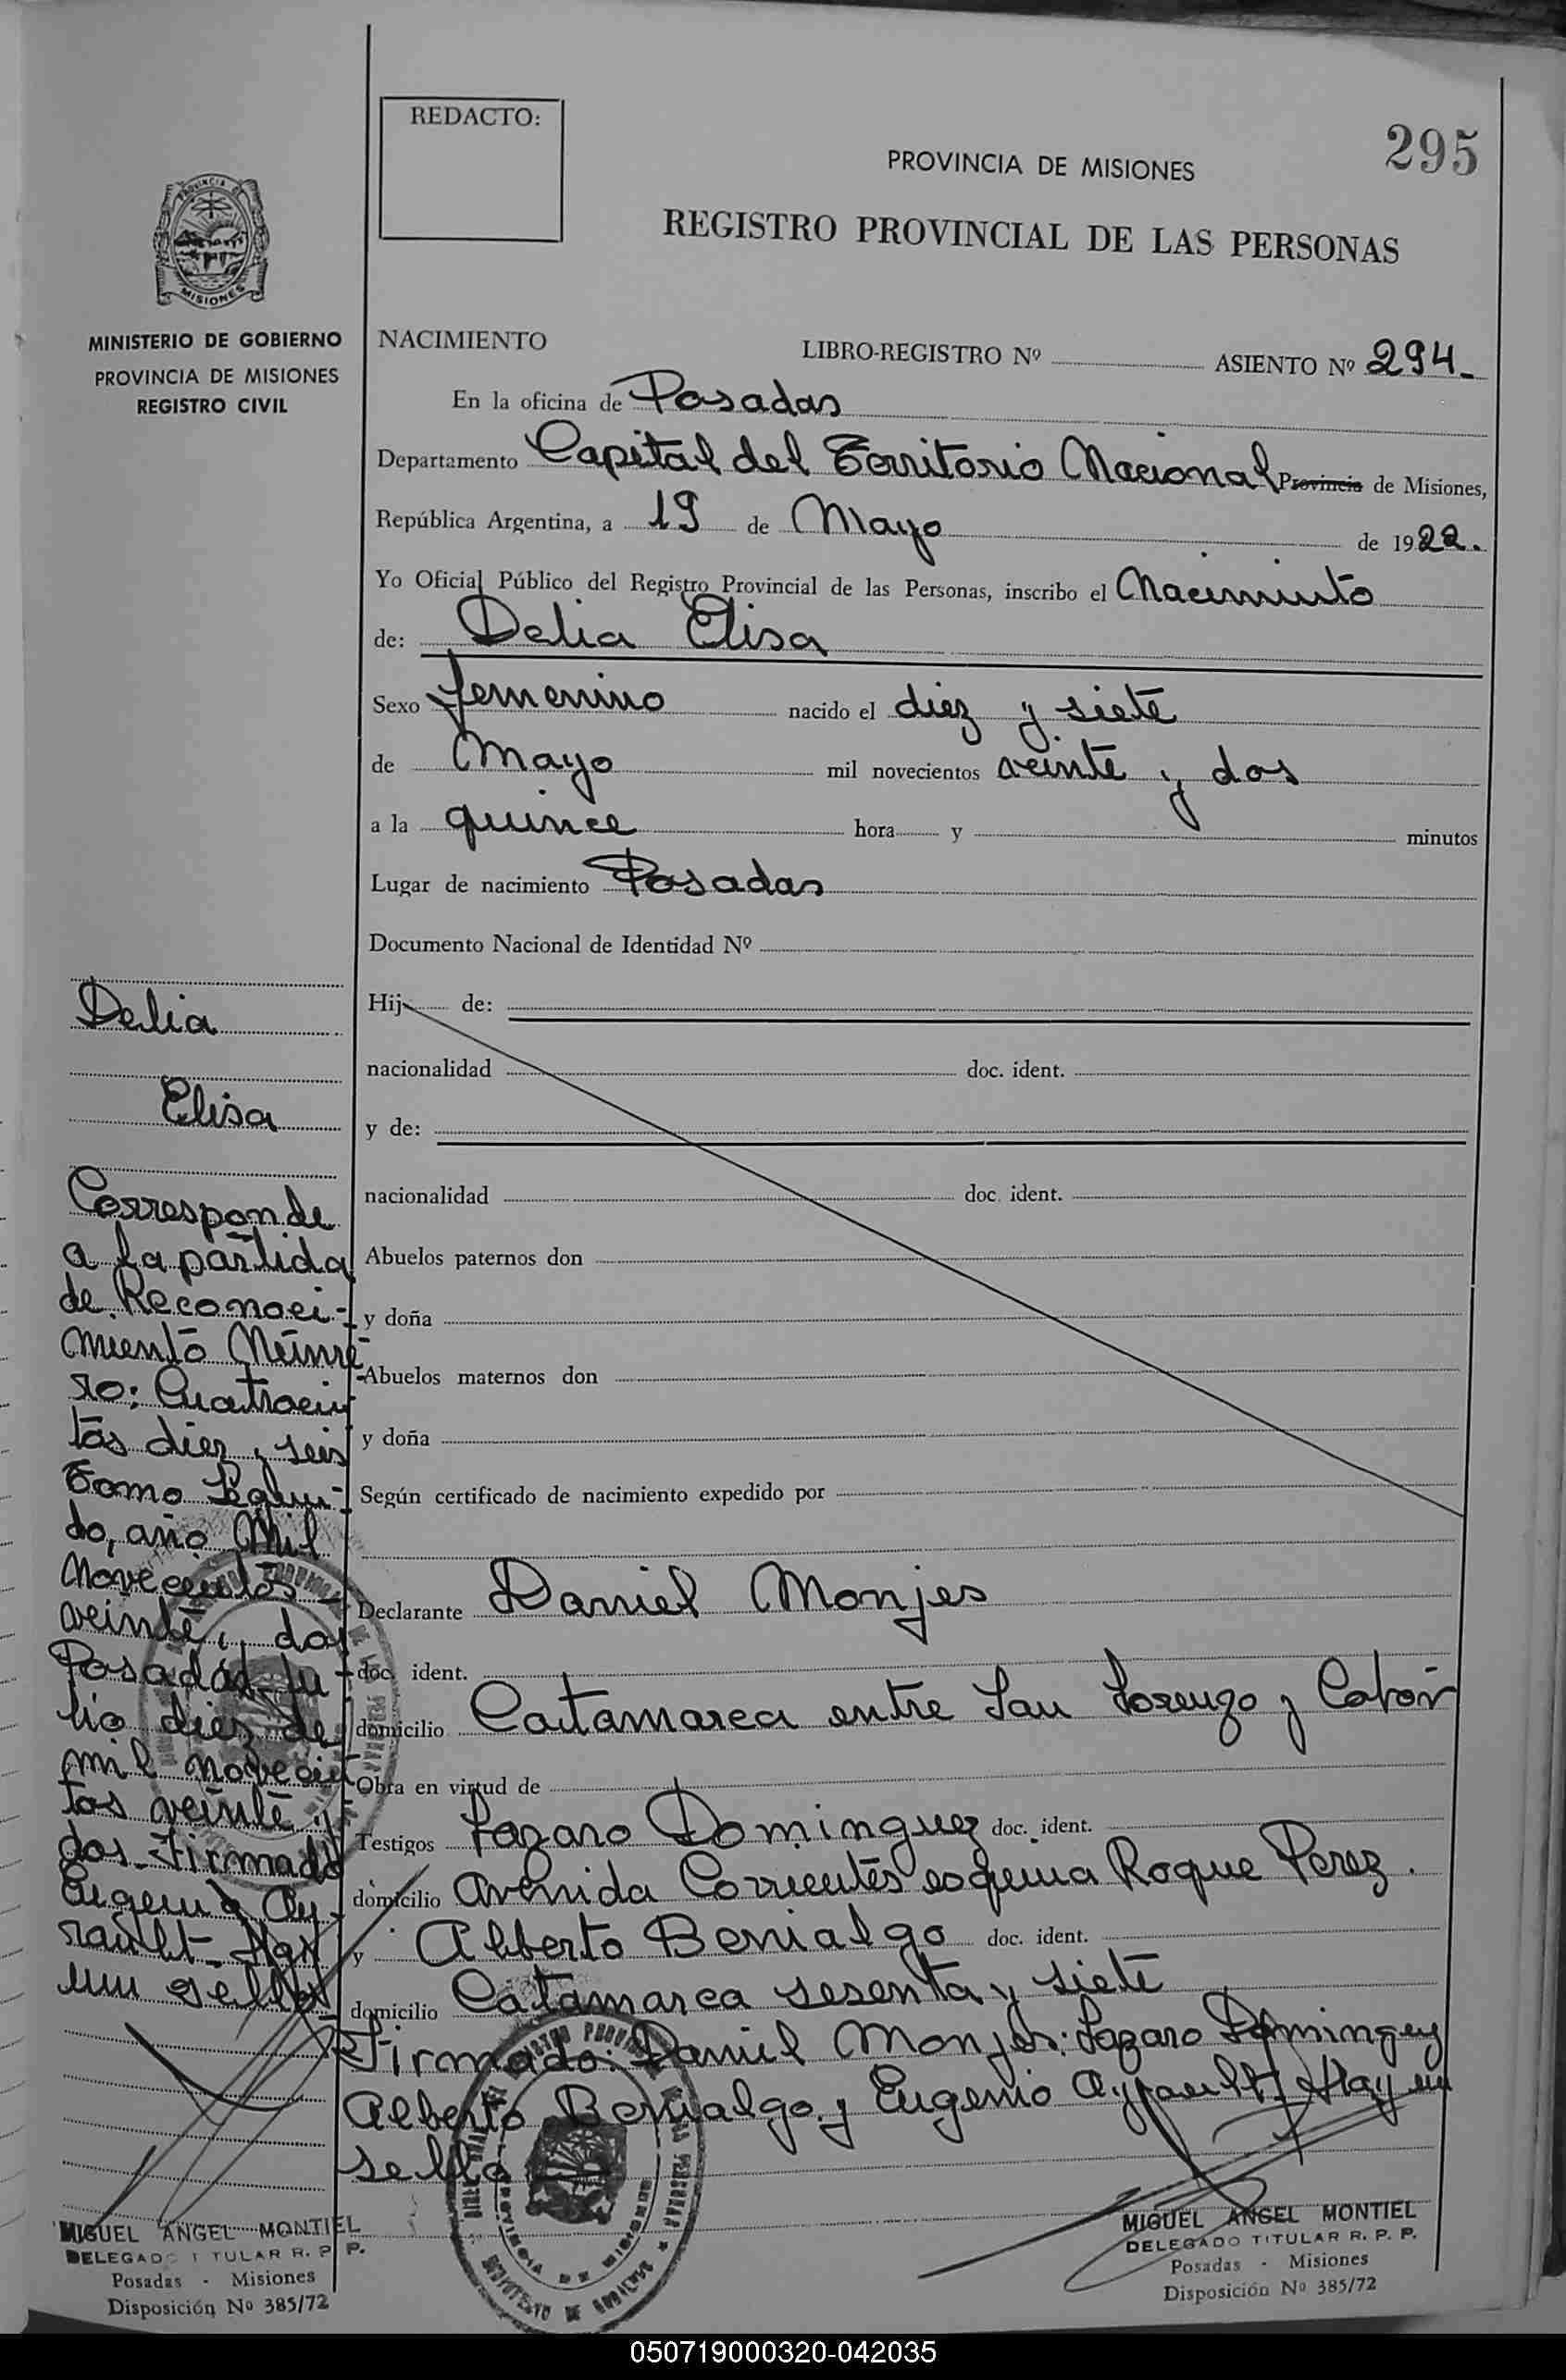 REDACTO:
295
PROVINCIA DE MISIONES
REGISTRO PROVINCIAL DE LAS PERSONAS
PROVINCIA DE
MISIONES
MINISTERIO DE GOBIERNO
PROVINCIA DE MISIONES
REGISTRO CIVIL
NACIMIENTO
LIBRO-REGISTRO Nº ASIENTO Nº 294_
En la oficina de Posadas
Departamento Capital del Territorio Nacional Provincia de Misiones,
República Argentina, a 19 de Mayo de 1922.
Yo Oficial Público del Registro Provincial de las Personas, inscribo el Nacimiento
de: Delia Elisa
Sexo femenino nacido el diez y siete
de Mayo mil novecientos veinte y dos
a la quince hora y minutos
Lugar de nacimiento Posadas
Documento Nacional de Identidad Nº
Hij de:
nacionalidad doc. ident.
y de:
nacionalidad doc. ident.
Abuelos paternos don
y doña
Abuelos maternos don
y doña
Según certificado de nacimiento expedido por
Declarante Daniel Monjes
doc. ident.
domicilio Catamarca entre San Lorenzo y Colón
Obra en virtud de
Testigos Lazaro Dominguez doc. ident.
domicilio Avenida Corrientes esquina Roque Perez.
y Alberto Benialgo doc. ident.
domicilio Catamarca sesenta y siete
Firmado: Daniel Monjes: Lazaro Dominguez
Alberto Benialgo y Eugenio Ayrault Hay un
sello
MIGUEL ANGEL MONTIEL
DELEGADO TITULAR R. P. P.
Posadas - Misiones
Disposición Nº 385/72
Delia
Elisa
Corresponde
a la partida
de Reconoci-
miento Núme
ro: Cuatrocien
tos diez y seis
Tomo Segun-
do, año Mil
Novecientos
veinte y dos
Posadas Ju-
lio diez de
mil novecien
tos veinte y
dos_Firmado
Eugenio Ay-
rault_Hay
un sello
MIGUEL ANGEL MONTIEL
DELEGADO TITULAR R. P. P.
Posadas - Misiones
Disposición Nº 385/72
050719000320-042035